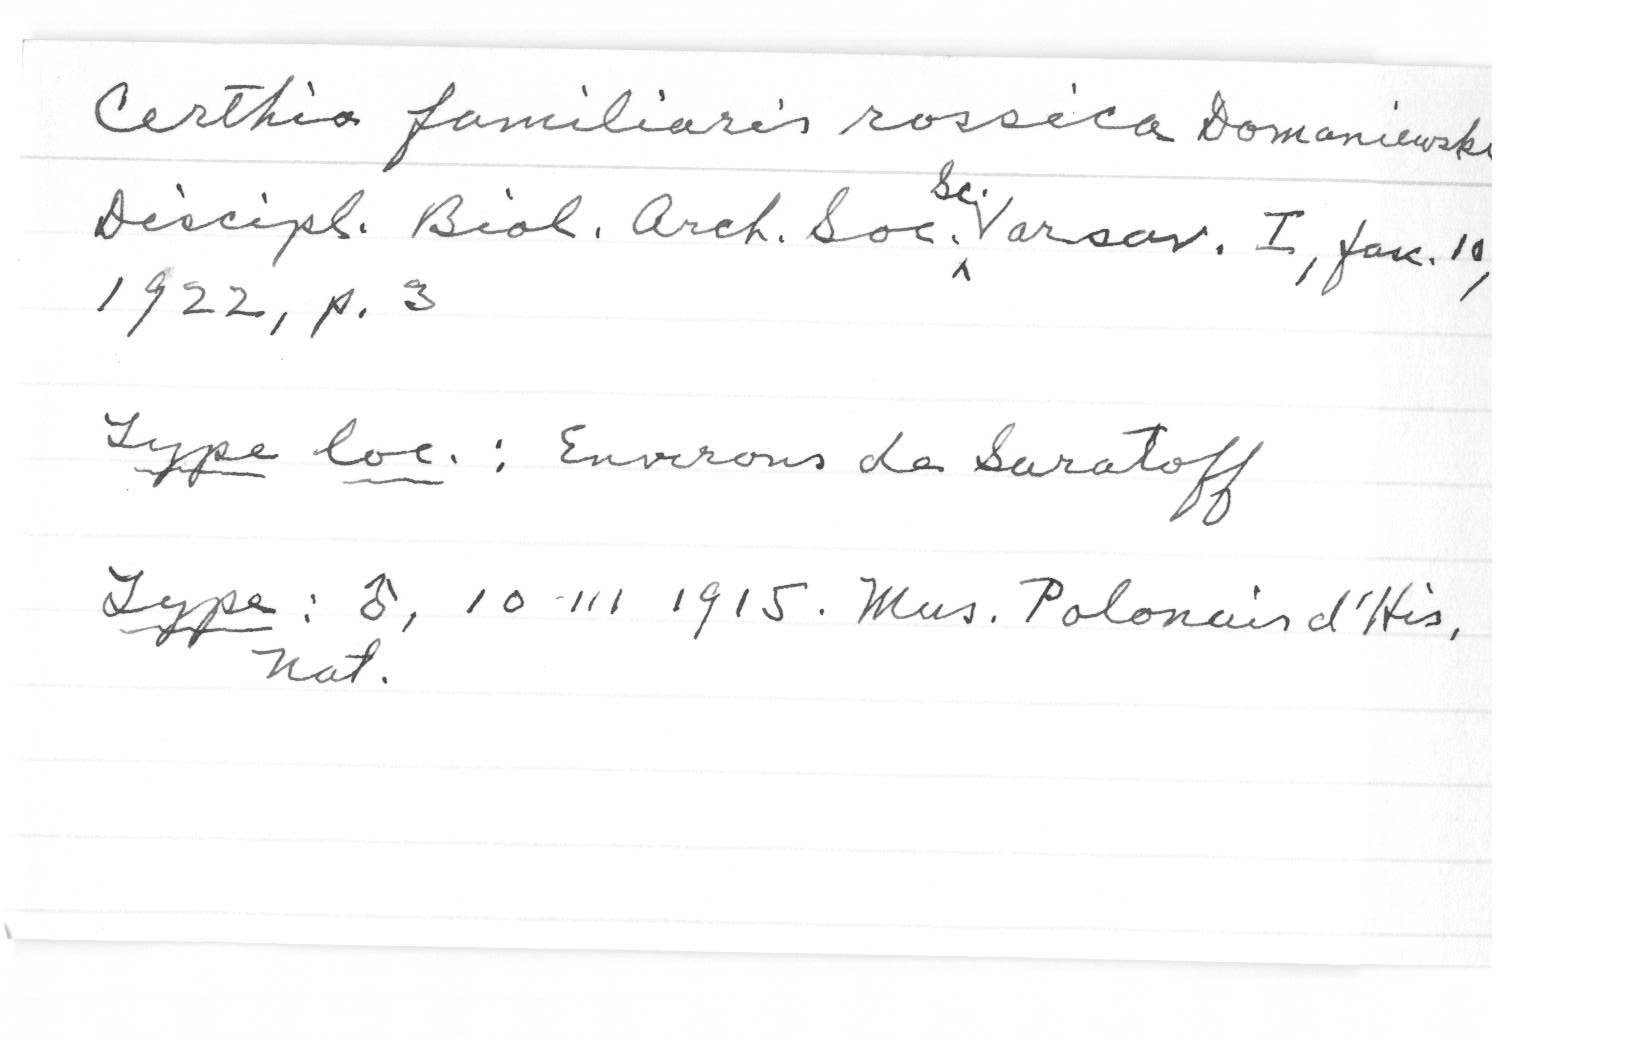 Certhia familiaris rossica Domaniewski
Discipl. Biol. Arch. Soc. Sci. Varsav. I, fasc. 10,
1922, p. 3
Type loc. : Environs de Saratoff
Type : ♂, 10-III 1915. Mus. Polonais d'His.
Nat.